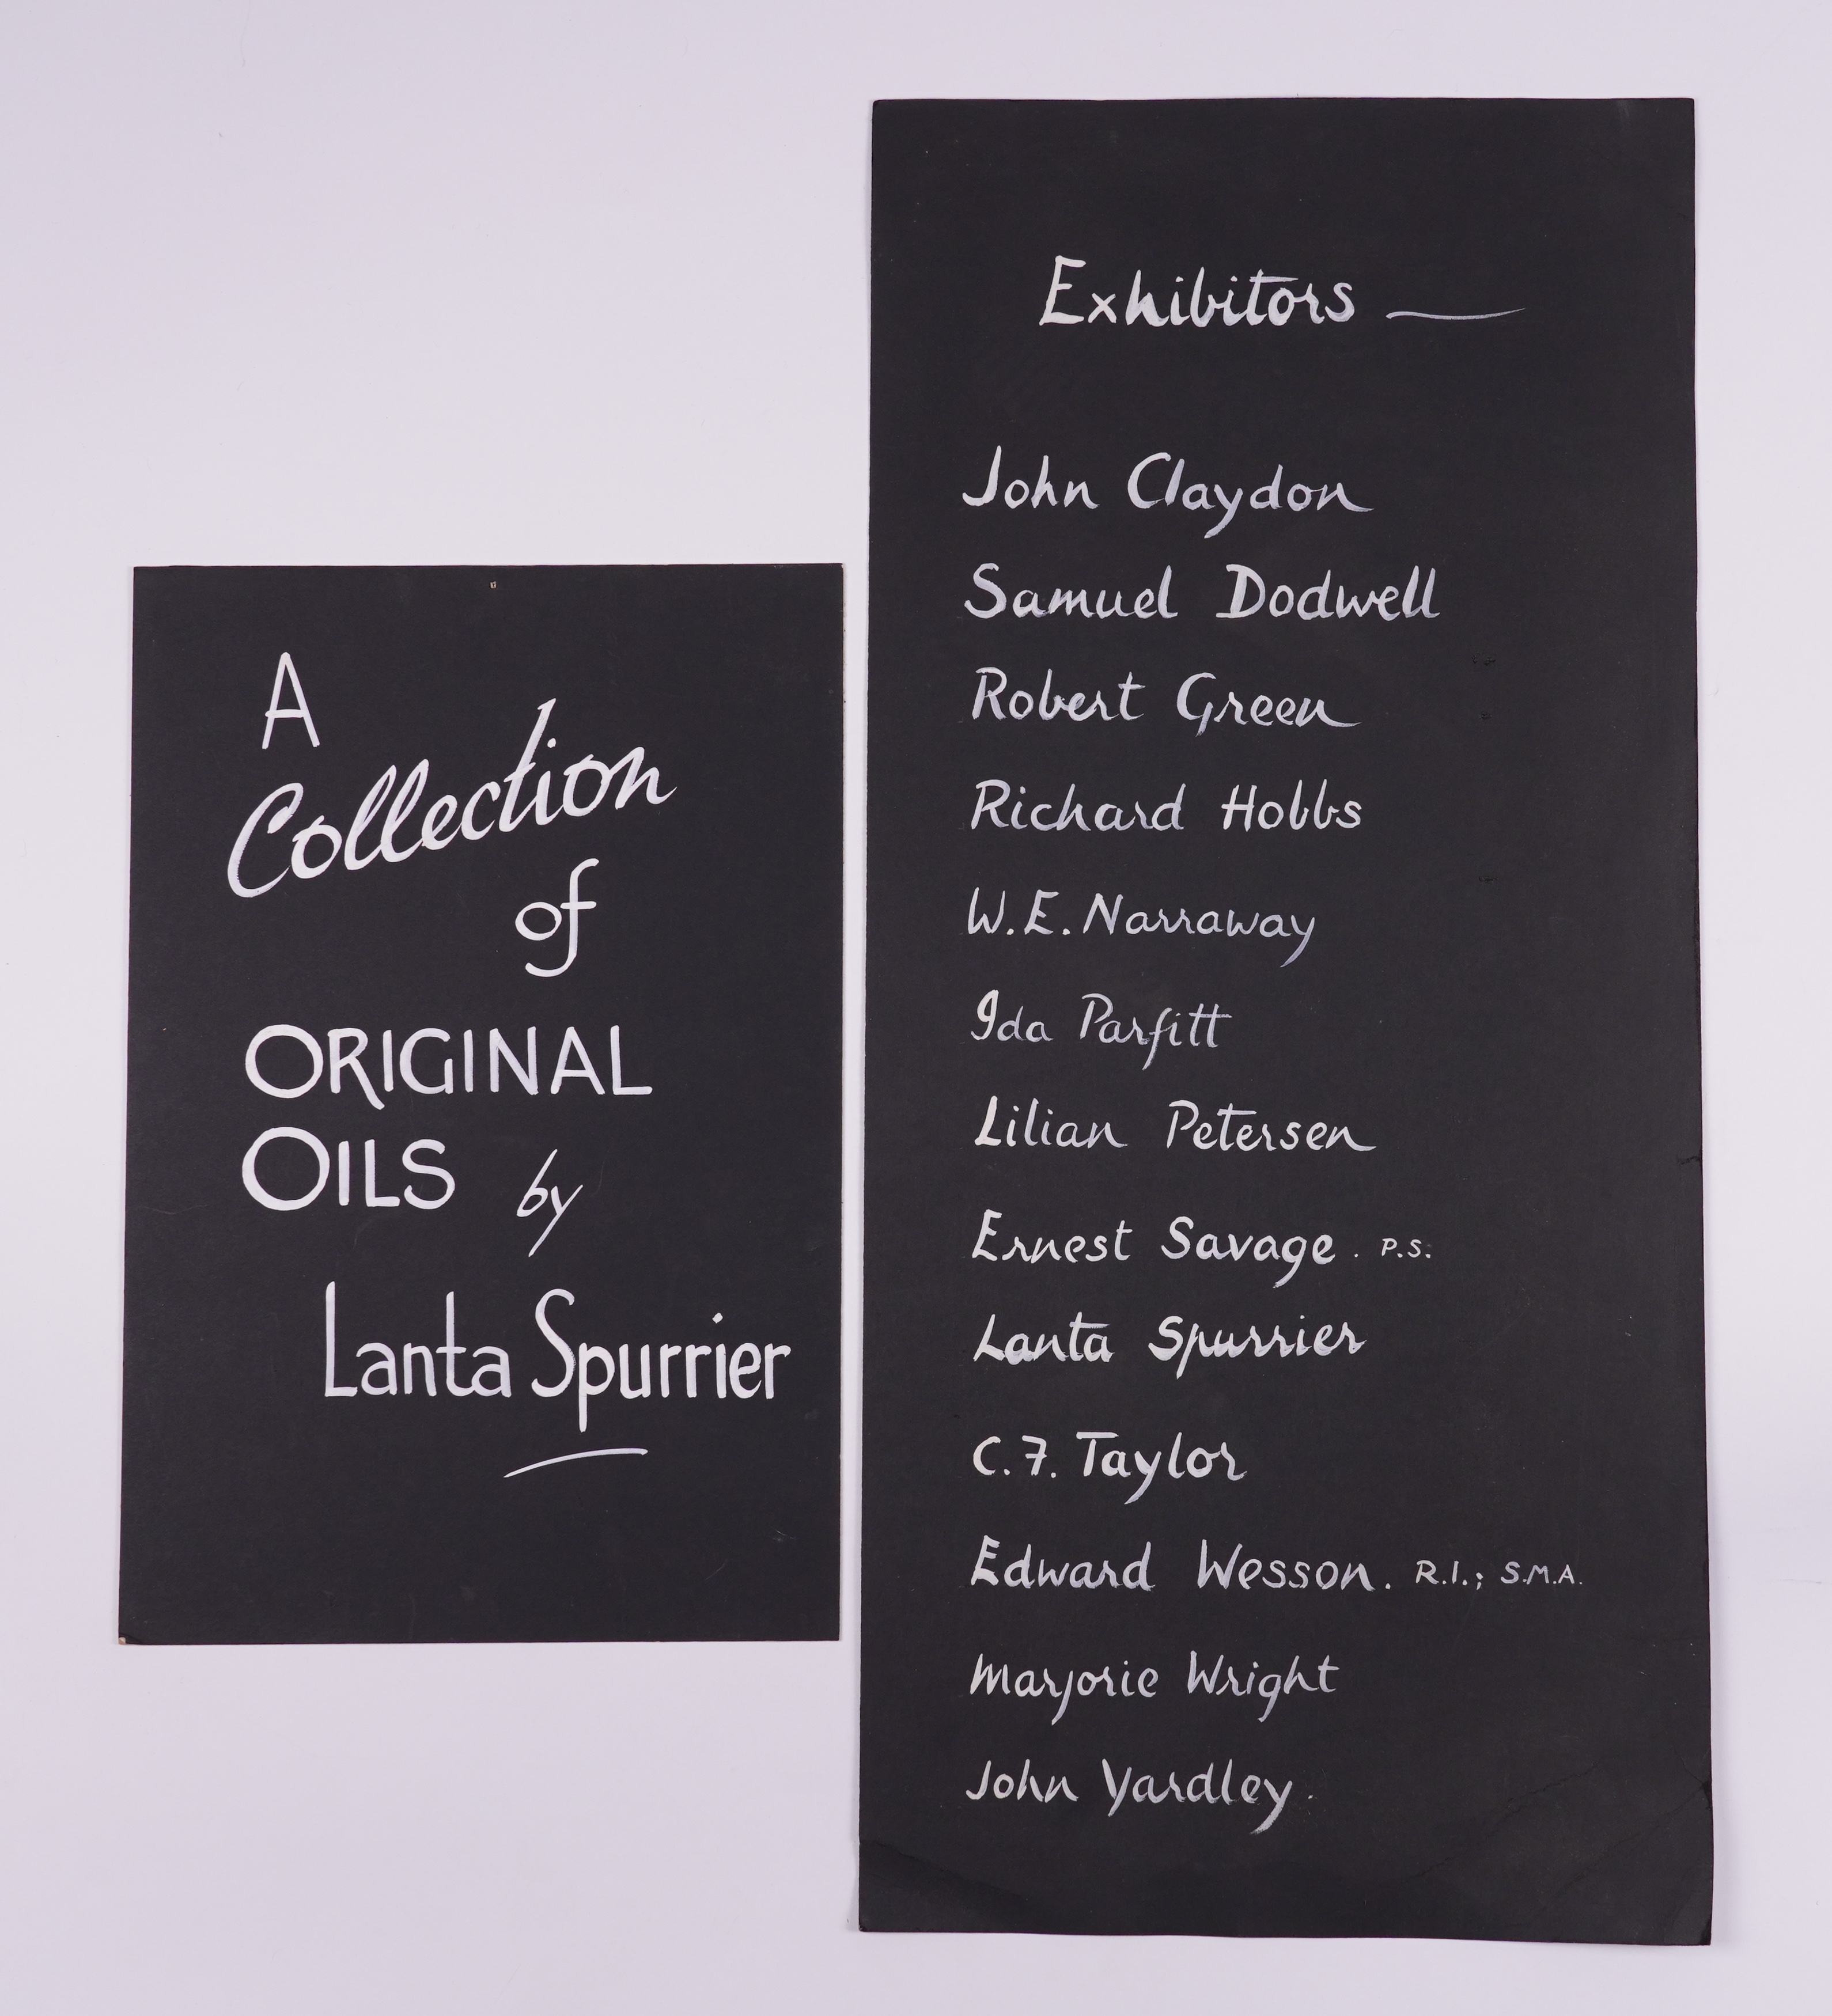 A
Collection
of
ORIGINAL
OILS by
Lanta Spurrier
Exhibitors —
John Claydon
Samuel Dodwell
Robert Green
Richard Hobbs
W.E. Narraway
Ida Parfitt
Lilian Petersen
Ernest Savage. P.S.
Lanta Spurrier
C.F. Taylor
Edward Wesson. R.I.; S.M.A.
Marjorie Wright
John Yardley.